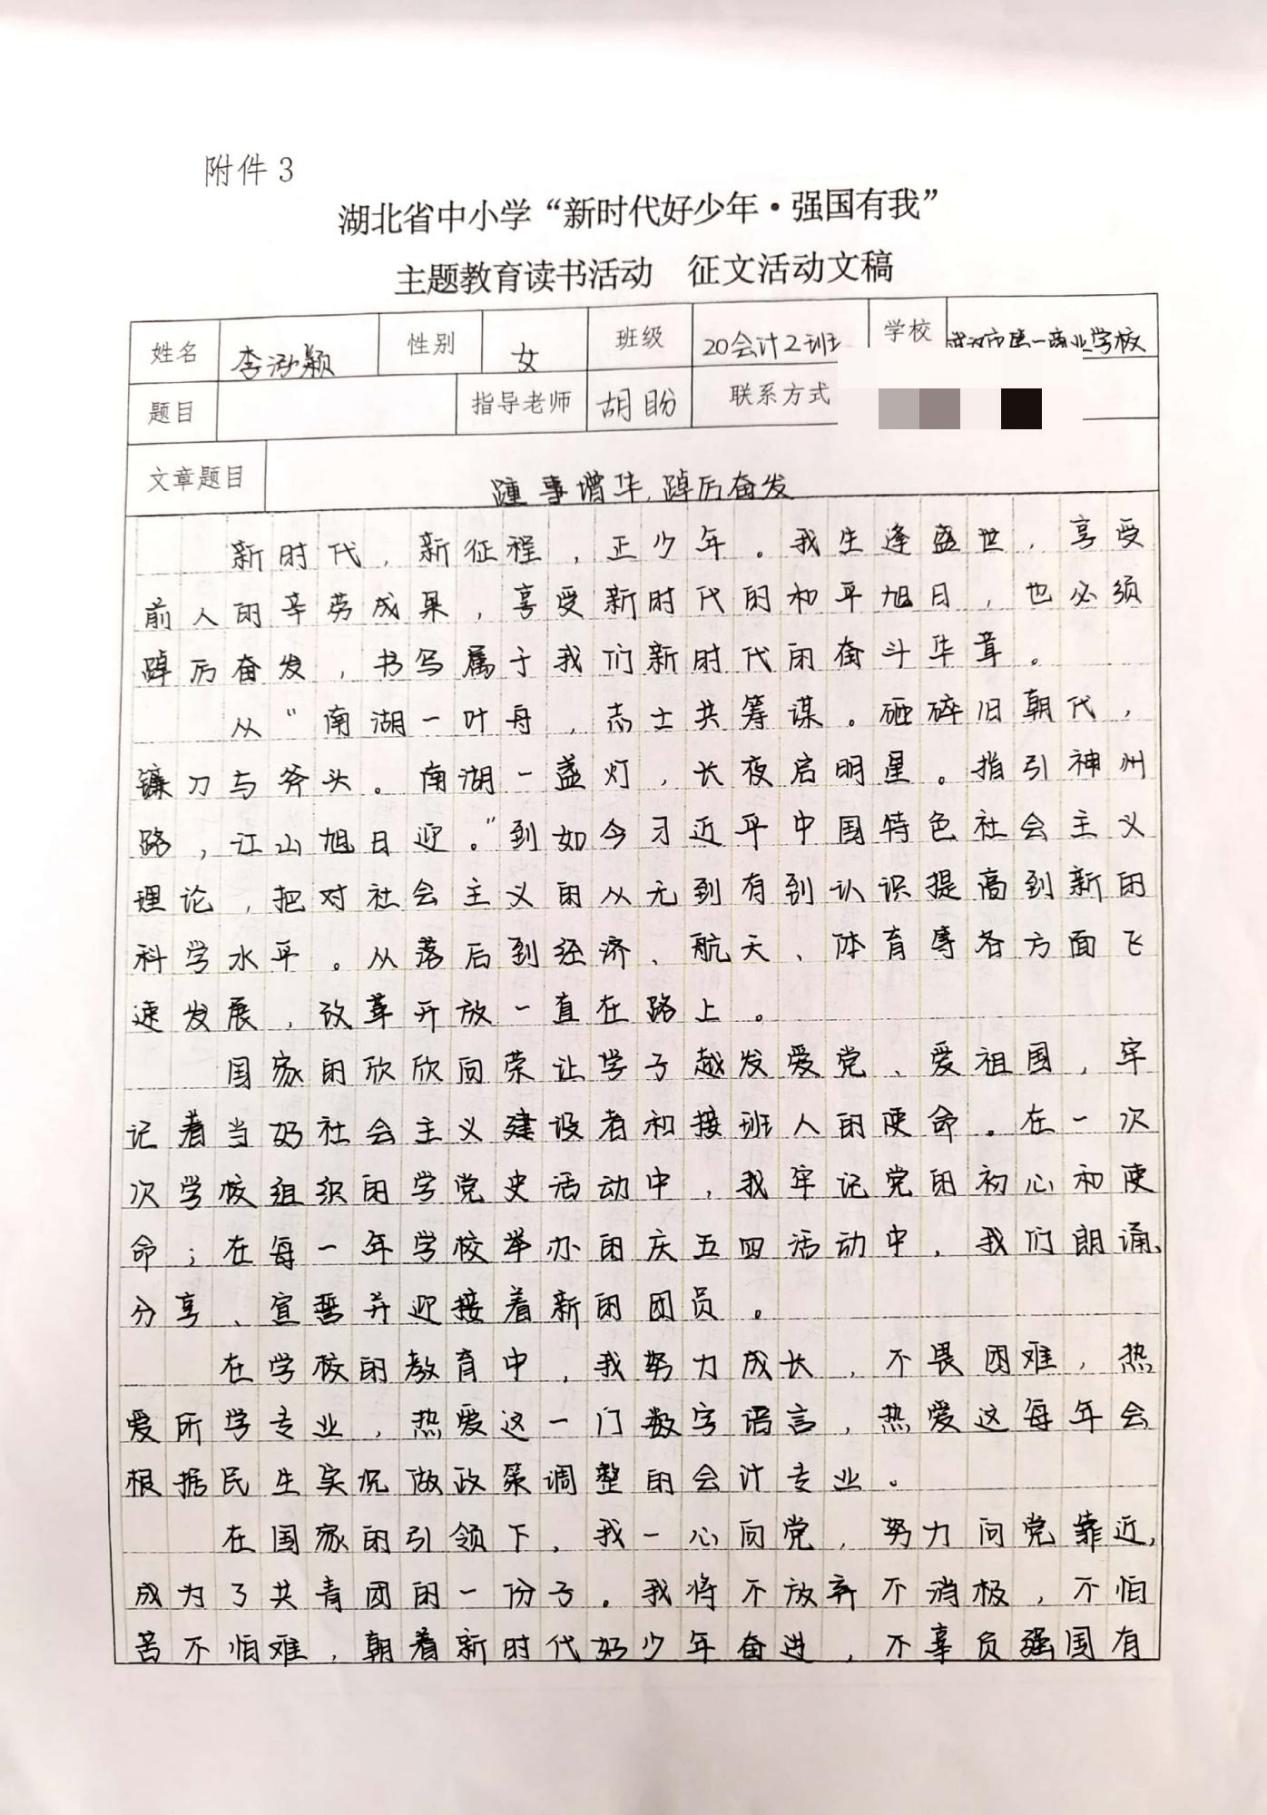 附件3
湖北省中小学“新时代好少年·强国有我”
主题教育读书活动 征文活动文稿
姓名 李泓颖 性别 女 班级 20会计2班 学校 武汉市第一商业学校
题目 指导老师 胡盼 联系方式
文章题目 踵事增华,踔厉奋发
新时代,新征程,正少年。我生逢盛世,享受
前人的辛劳成果,享受新时代的和平旭日,也必须
踔厉奋发,书写属于我们新时代的奋斗华章。
从“南湖一叶舟,志士共筹谋。砸碎旧朝代,
镰刀与斧头。南湖一盏灯,长夜启明星。指引神州
路,江山旭日迎。”到如今习近平中国特色社会主义
理论,把对社会主义的从无到有到认识提高到新的
科学水平。从落后到经济、航天、体育等各方面飞
速发展,改革开放一直在路上。
国家的欣欣向荣让学子越发爱党、爱祖国,牢
记着当好社会主义建设者和接班人的使命。在一次
次学校组织的学党史活动中,我牢记党的初心和使
命;在每一年学校举办的庆五四活动中,我们朗诵、
分享、宣誓并迎接着新的团员。
在学校的教育中,我努力成长,不畏困难,热
爱所学专业,热爱这一门数字语言,热爱这每年会
根据民生实况做政策调整的会计专业。
在国家的引领下,我一心向党,努力向党靠近,
成为了共青团的一份子。我将不放弃不消极,不怕
苦不怕难,朝着新时代好少年奋进,不辜负强国有